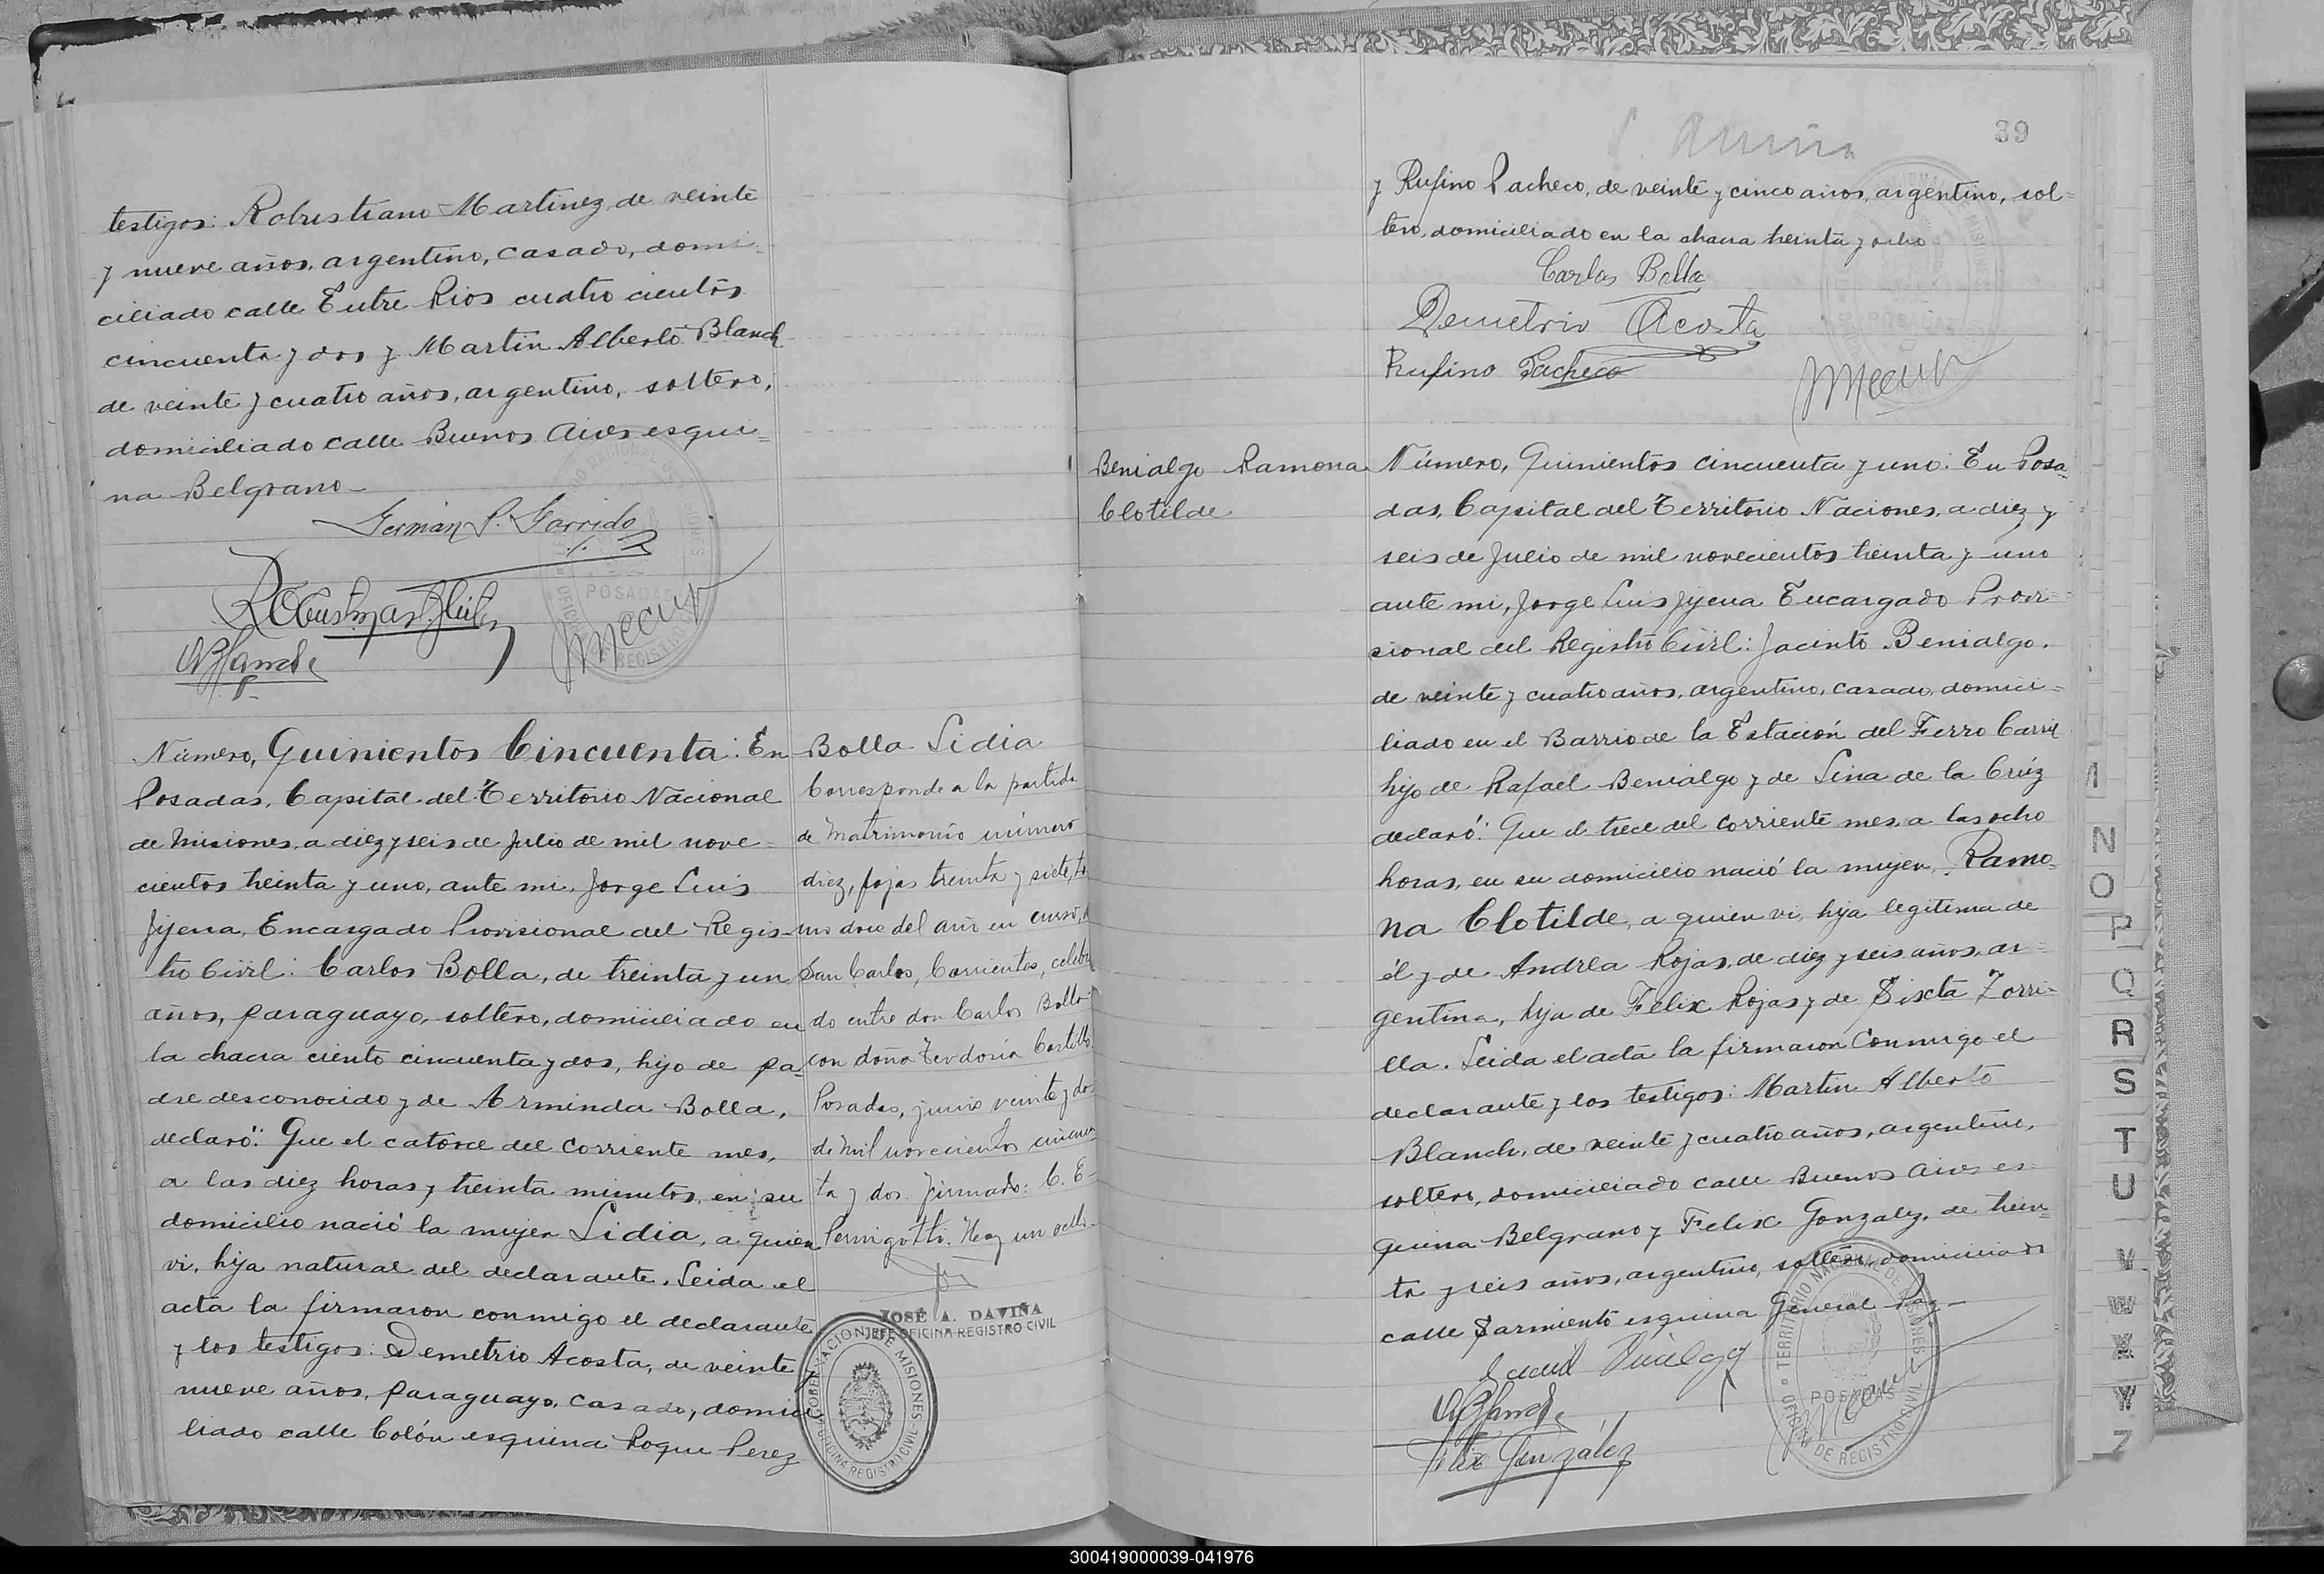 testigos: Robustiano Martinez, de veinte
y nueve años, argentino, casado, domi-
ciliado calle Entre Rios cuatro cientos
cincuenta y dos y Martin Alberto Blanch
de veinte y cuatro años, argentino, soltero,
domiciliado calle Buenos Aires esqui=
na Belgrano-
German P. Garrido
Blanch
POSADAS
Número, Quinientos Cincuenta: En
Posadas, Capital del Territorio Nacional
de Misiones, a diez y seis de Julio de mil nove=
cientos treinta y uno, ante mi, Jorge Luis
Jijena, Encargado Provisional del Regis-
tro Civil: Carlos Bolla, de treinta y un
años, paraguayo, soltero, domiciliado en
la chacra ciento cincuenta y dos, hijo de pa-
dre desconocido y de Arminda Bolla,
declaró: Que el catorce del corriente mes,
a las diez horas y treinta minutos, en su
domicilio nació la mujer Lidia, a quien
vi, hija natural del declarante. Leida el
acta la firmaron conmigo el declarante
y los testigos: Demetrio Acosta, de veinte y
nueve años, paraguayo, casado, domici
liado calle Colón esquina Roque Perez
Bolla Lidia
Corresponde a la partida
de Matrimonio número
diez, fojas treinta y siete, to
mo dos del año en curso,
San Carlos, Corrientes, celebra
do entre don Carlos Bolla
con doña Teodoria Castillo.
Posadas, junio veinte y dos
de mil novecientos cincuen
ta y dos. firmado: C. E.
Perigotti. Hay un sello-
JOSÉ A. DAVIÑA
JEFE OFICINA REGISTRO CIVIL
GOBERNACION DE MISIONES
OFICINA REGISTRO CIVIL
39
y Rufino Pacheco, de veinte y cinco años, argentino, sol=
tero, domiciliado en la chacra treinta y ocho
Carlos Bolla
Demetrio Acosta
Rufino Pacheco
Benialgo Ramona
Clotilde
Número, Quinientos cincuenta y uno: En Posa-
das, Capital del Territorio Naciones, a diez y
seis de Julio de mil novecientos treinta y uno
ante mi, Jorge Luis Jijena Encargado Provi=
sional del Registro Civil: Jacinto Benialgo,
de veinte y cuatro años, argentino, casado, domici=
liado en el Barrio de la Estación del Ferro Carril
hijo de Rafael Benialgo y de Lina de la Crúz
declaró: Que el trece del corriente mes, a las ocho
horas, en su domicilio nació la mujer, Ramo-
na Clotilde, a quien vi, hija legitima de
él y de Andrea Rojas, de diez y seis años, ar=
gentina, hija de Felix Rojas y de Sixta Zorri-
lla. Leida el acta la firmaron conmigo el
declarante y los testigos: Martin Alberto
Blanch, de veinte y cuatro años, argentino,
soltero, domiciliado calle Buenos Aires es-
quina Belgrano y Felix Gonzalez, de trein=
ta y seis años, argentino, soltero, domiciliado
calle Sarmiento esquina General Paz-
Blanch
Felix González
TERRITORIO NACIONAL DE MISIONES
POSADAS
OFICINA DE REGISTRO CIVIL
I
N
O
P
Q
R
S
T
U
V
W
X
Y
Z
300419000039-041976